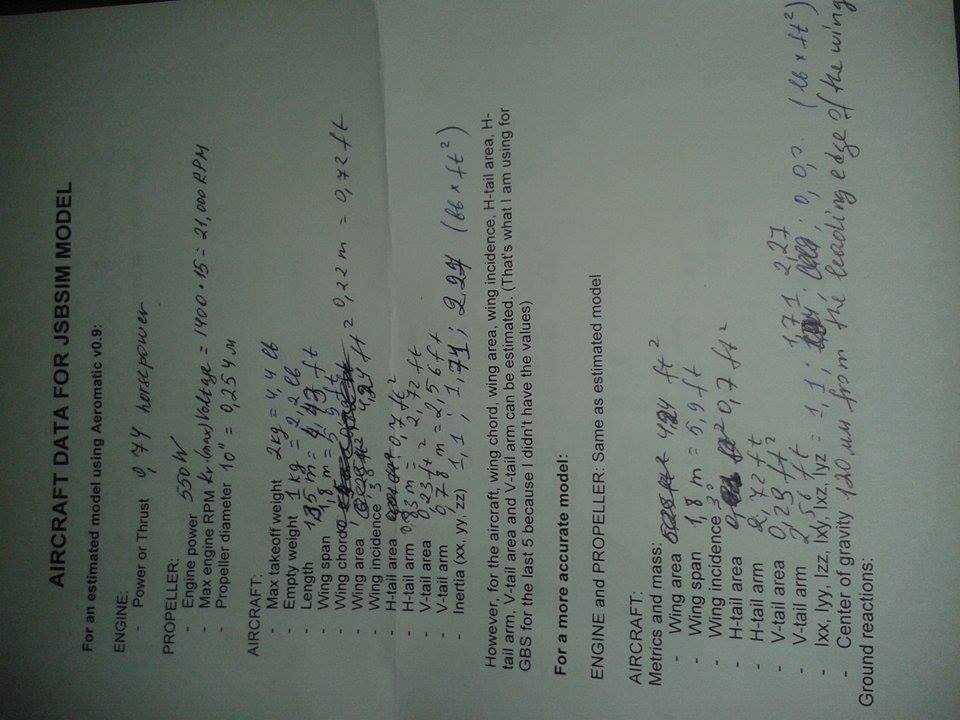 AIRCRAFT DATA FOR JSBSIM MODEL
For an estimated model using Aeromatic v0.9:
ENGINE:
- Power or Thrust 0,74 horsepower
PROPELLER:
- Engine power 550W
- Max engine RPM kv·(max)Voltage = 1400·15 = 21,000 RPM
- Propeller diameter 10" = 0,254 м
AIRCRAFT:
- Max takeoff weight 2kg = 4,4 lb
- Empty weight 1 kg = 2,2 lb
- Length 1,35 m = 4,43 ft
- Wing span 1,8 m = 5,9 ft
- Wing chord 0,22 m = 0,72 ft
- Wing area 4,24 ft²
- Wing incidence 3°
- H-tail area 0,7 ft²
- H-tail arm 0,83 m = 2,72 ft
- V-tail area 0,23 ft²
- V-tail arm 0,78 m = 2,56 ft
- Inertia (ixx, yy, zz) 1,1 ; 1,71 ; 2,27 (lb x ft²)
However, for the aircraft, wing chord, wing area, wing incidence, H-tail area, H-
tail arm, V-tail area and V-tail arm can be estimated. (That's what I am using for
GBS for the last 5 because I didn't have the values)
For a more accurate model:
ENGINE and PROPELLER: Same as estimated model
AIRCRAFT:
Metrics and mass:
- Wing area 4,24 ft²
- Wing span 1,8 m = 5,9 ft
- Wing incidence 3°
- H-tail area 0,7 ft²
- H-tail arm 2,72 ft
- V-tail area 0,23 ft²
- V-tail arm 2,56 ft
- Ixx, Iyy, Izz, Ixy, Ixz, Iyz = 1,1 ; 1,71 2,27 0, 0, 0 (lb x ft²)
- Center of gravity 120 мм from the leading edge of the wing
Ground reactions: